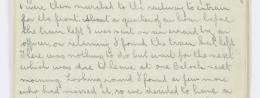 I were then marched to the railway to entrain
for the front. About a quarter of an hour before
the train left I was sent on an errand by an
officer, on returning I found the train had left
There was nothing to do but wait for the next
which was due to leave at one o'clock next
morning. Looking round I found a few more
who had missed it, so we decided to have a